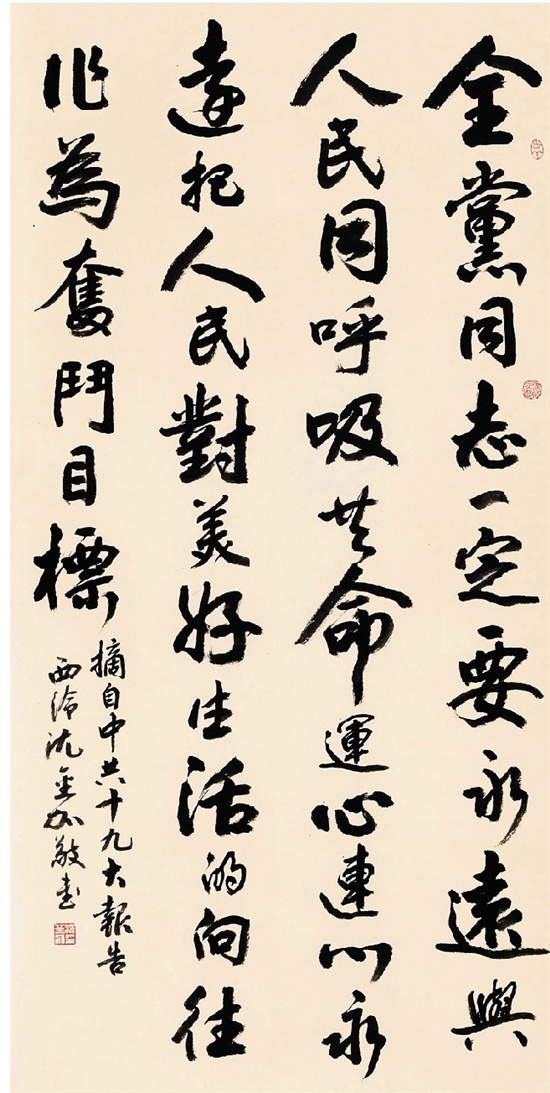 全黨同志一定要永遠與
人民同呼吸共命運心連心永
遠把人民對美好生活的向往
作為奮鬥目標
摘自中共十九大報告
西泠沈金加敬書